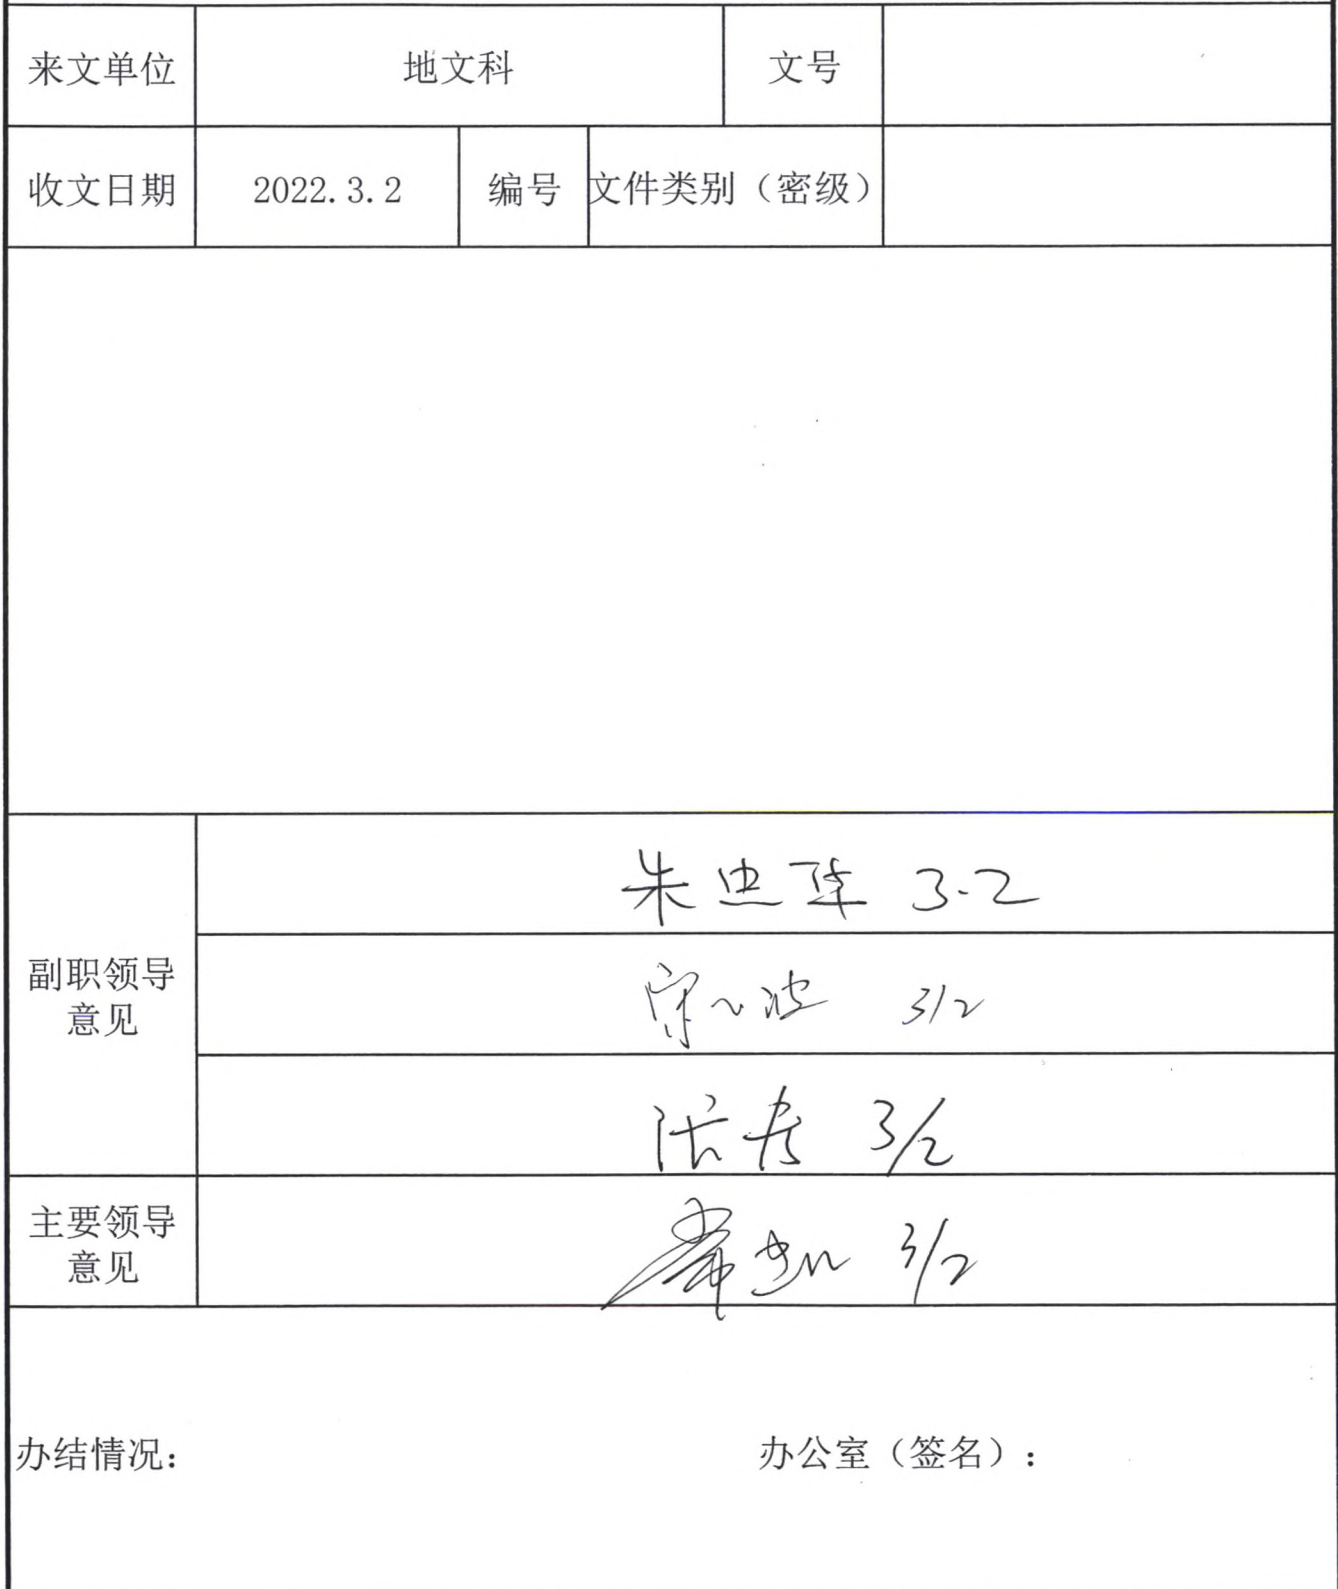 来文单位 地文科 文号
收文日期 2022.3.2 编号 文件类别（密级）
朱忠 3-2
副职领导
意见
波 3/2
张 3/2
主要领导
意见
3/2
办结情况： 办公室（签名）：